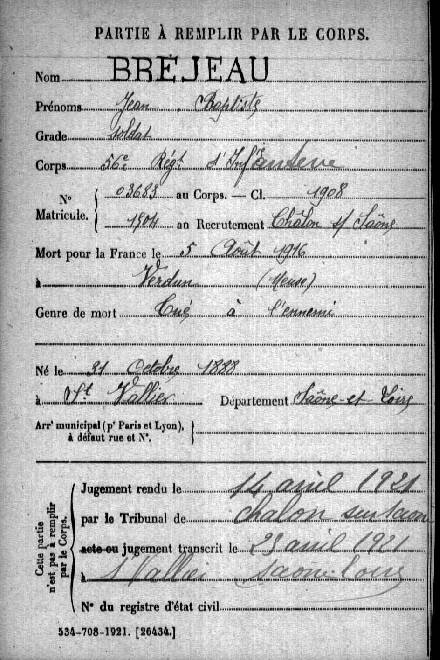 PARTIE À REMPLIR PAR LE CORPS.
Nom BREJEAU
Prénoms Jean Baptiste
Grade Soldat
Corps 56e Régt d'Infanterie
N° Matricule. { 03683 au Corps. — Cl. 1908
1504 au Recrutement Châlon s/ Saône
Mort pour la France le 5 Août 1916
à Verdun (Meuse)
Genre de mort Tué à l'ennemi
Né le 31 Octobre 1888
à St Vallier Département Saône-et-Loire
Arrt municipal (pr Paris et Lyon), à défaut rue et N°.
Cette partie n'est pas à remplir par le Corps.
Jugement rendu le 14 avril 1921
par le Tribunal de Chalon sur Saone
acte ou jugement transcrit le 23 avril 1921
à St Vallier Saone Loire
N° du registre d'état civil
534-708-1921. [26434.]